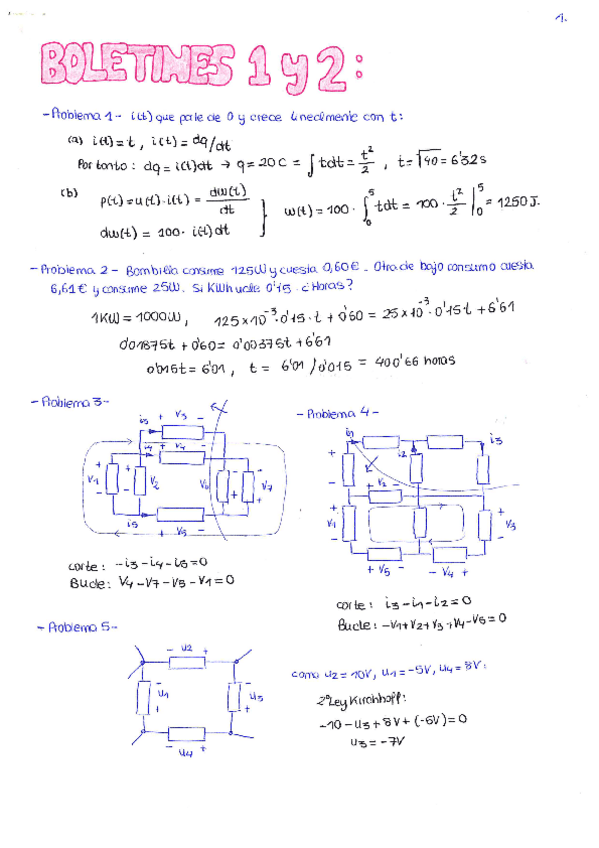 1.
BOLETINES 1 y 2:
-Problema 1- i(t) que parte de 0 y crece linealmente con t:
(a) i(t) = t, i(t) = dq/dt
Por tanto: dq = i(t)dt → q = 20C = ∫ tdt = t²/2, t = √40 = 6'32s
(b) p(t) = u(t)·i(t) = dw(t)/dt
dw(t) = 100· i(t)dt
w(t) = 100· ∫₀⁵ tdt = 100· t²/2 |₀⁵ = 1250 J.
-Problema 2- Bombilla consume 125W y cuesta 0,60€. Otra de bajo consumo cuesta
6,61€ y consume 25W. Si KWh vale 0'15. ¿Horas?
1KW = 1000W, 125x10⁻³·0'15·t + 0'60 = 25x10⁻³·0'15t + 6'61
0'01875t + 0'60 = 0'00375t + 6'61
0'015t = 6'01, t = 6'01/0'015 = 400'66 horas
-Problema 3-
i3 + V3 -
i4 + V4 -
+ V1 -
+ V2 -
V6 + -
V7 + -
i5
+ V5 -
corte: -i3-i4-i5=0
Bucle: V4-V7-V5-V1=0
-Problema 4-
i1
i2
i3
+ -
+ V2 -
V1 + -
+ V3 -
+ V5 -
- V4 +
corte: i3-i1-i2=0
Bucle: -V1+V2+V3+V4-V5=0
-Problema 5-
- u2 +
- u1 +
- u3 +
- u4 +
como u2 = 10V, u1 = -5V, u4 = 8V:
2ªLey Kirchhoff:
-10-u3+8V+(-5V)=0
u3 = -7V